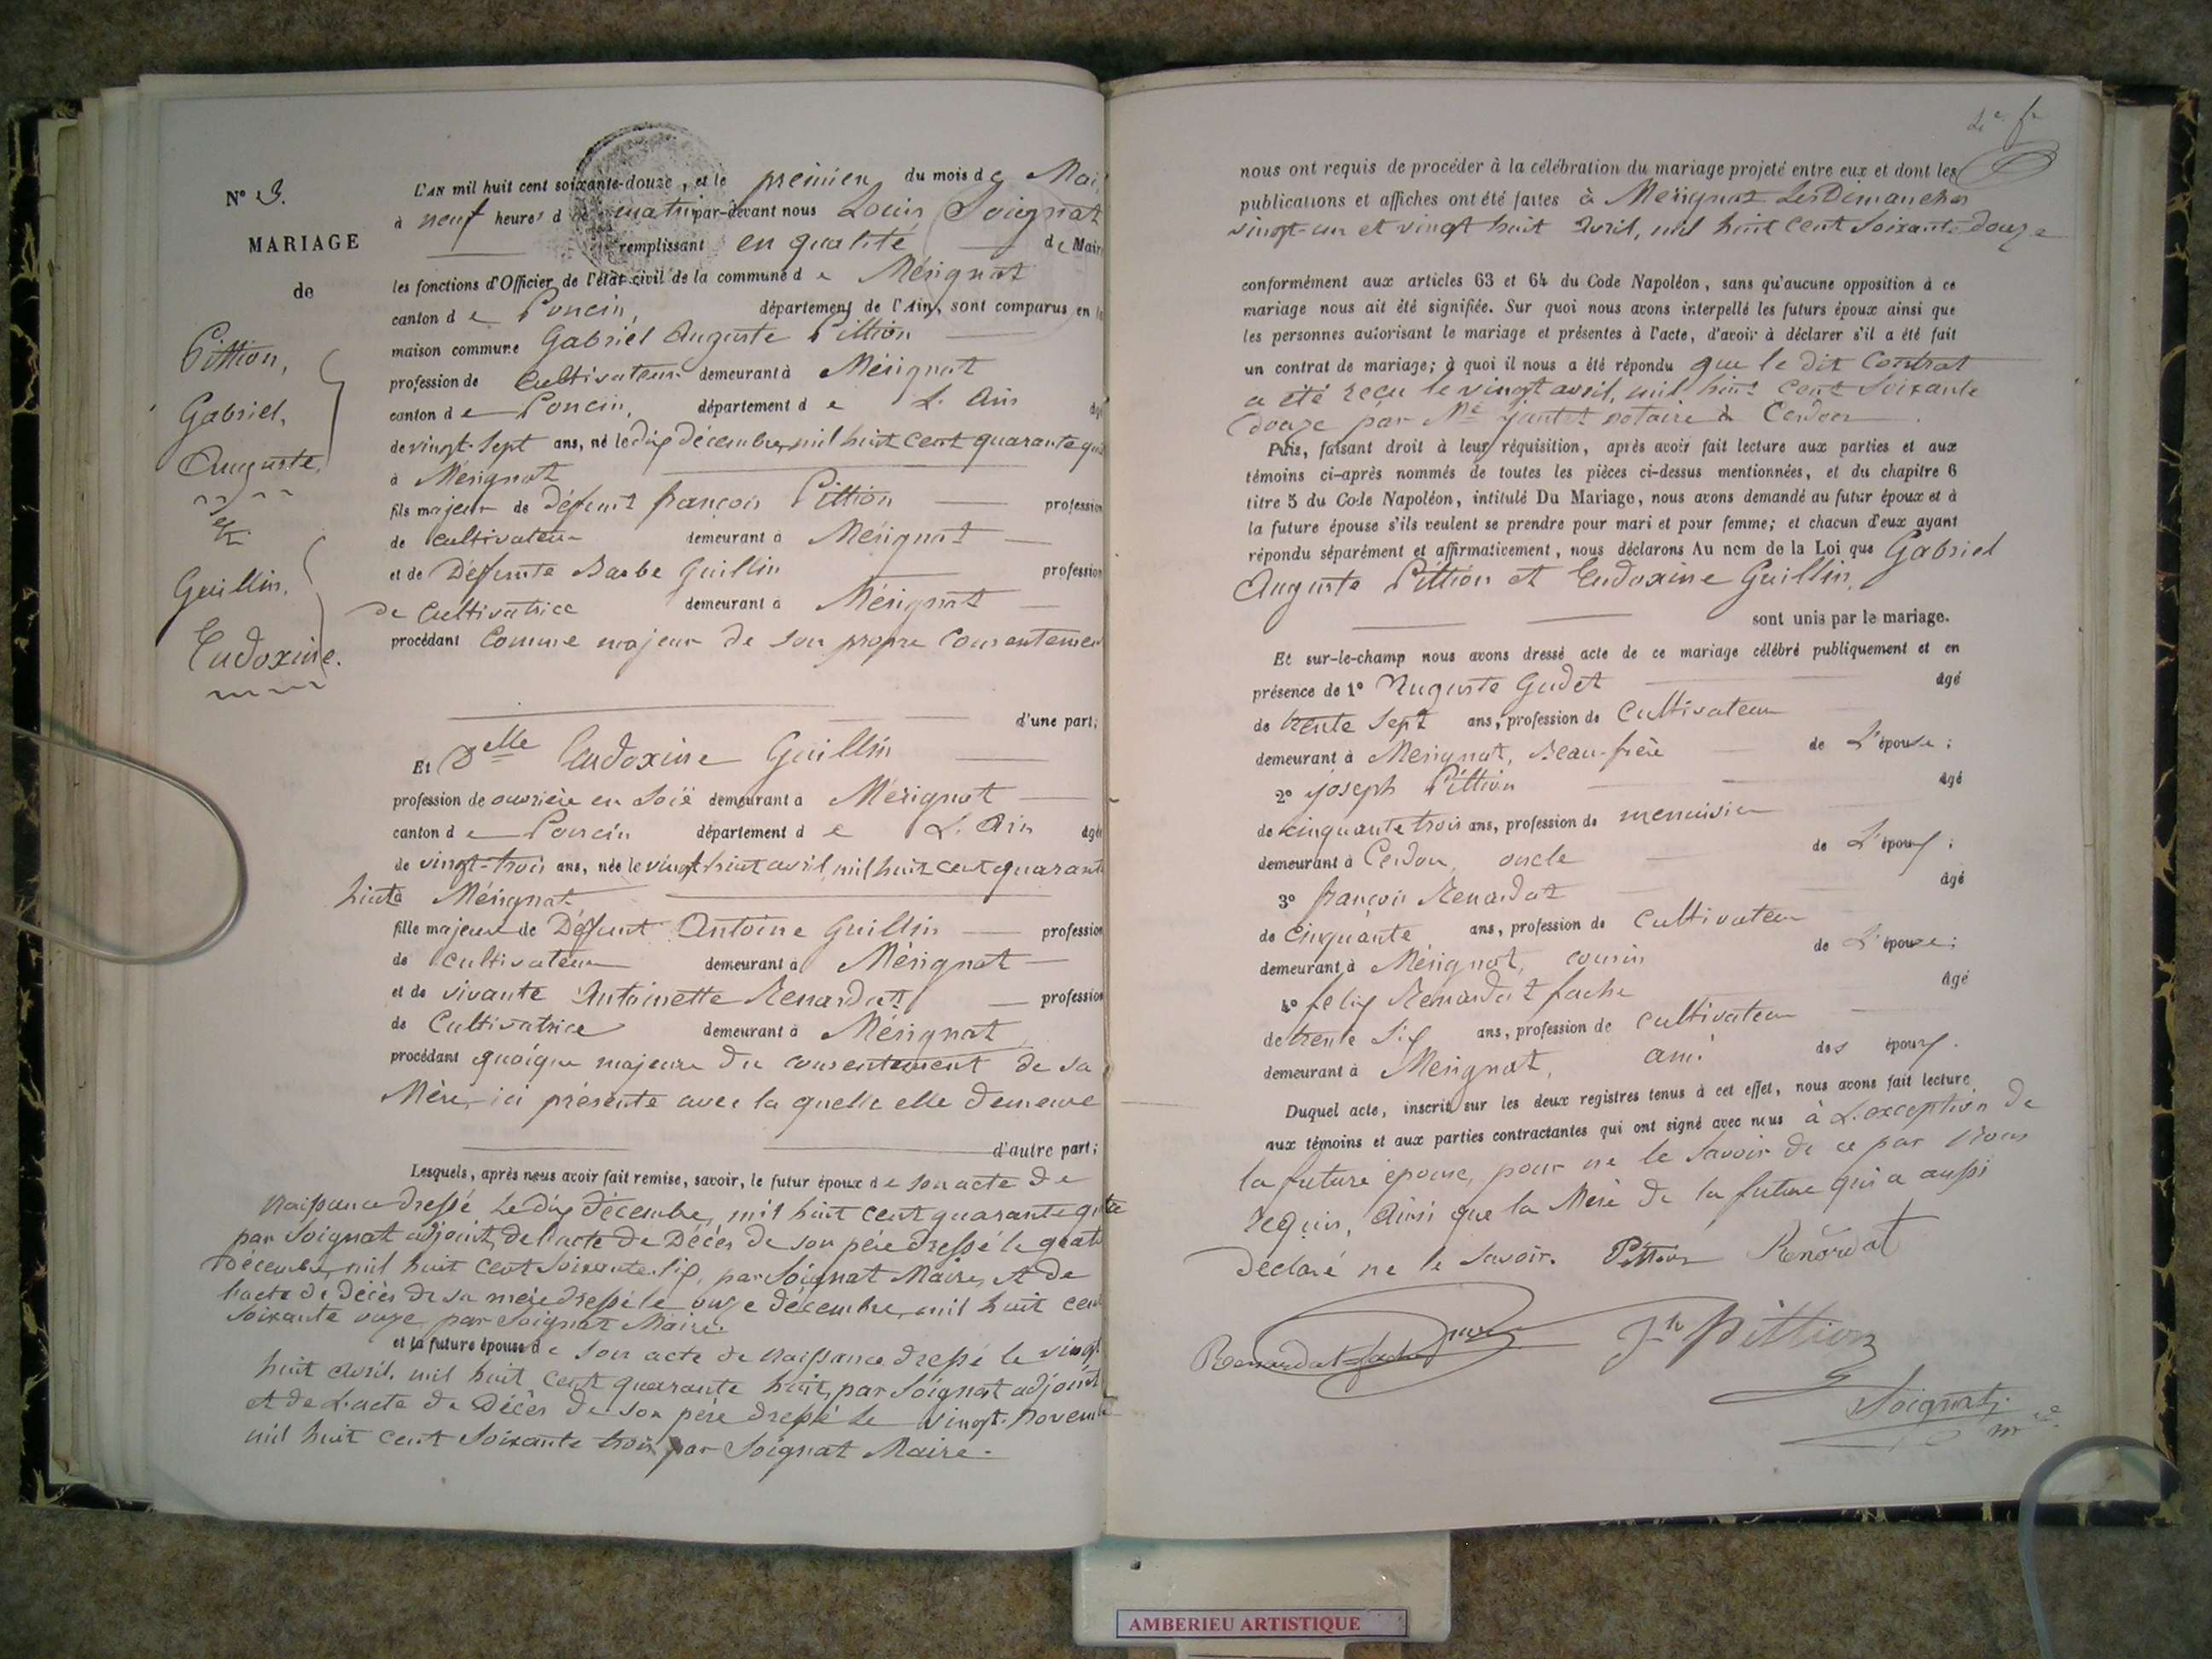 N° 3.
MARIAGE
de
Pittion,
Gabriel,
Auguste,
et
Guillin,
Eudoxine.
L'AN mil huit cent soixante-douze, et le premier du mois de Mai,
à neuf heures d matin par-devant nous Louis Soignat
remplissant en qualité de Maire
les fonctions d'Officier de l'état civil de la commune de Mérignat
canton de Poncin, département de l'Ain, sont comparus en la
maison commune Gabriel Auguste Pittion
profession de Cultivateur demeurant à Mérignat
canton de Poncin, département de L'Ain âgé
de vingt-sept ans, né le dix décembre, mil huit cent quarante qua
à Mérignat
fils majeur de Défunt françois Pittion profession
de cultivateur demeurant à Mérignat
et de Défunte Barbe Guillin profession
de Cultivatrice demeurant à Mérignat
procédant Comme majeur de son propre Consentemen
d'une part;
Et Delle Eudoxine Guillin
profession de ouvrière en Soie demeurant à Mérignat
canton de Poncin département de L'Ain âgée
de vingt-trois ans, née le vingt huit avril, mil huit cent quarante
huit à Mérignat
fille majeure de Défunt Antoine Guillin profession
de Cultivateur demeurant à Mérignat
et de vivante Antoinette Renardat profession
de Cultivatrice demeurant à Mérignat
procédant quoique majeure du consentement de sa
Mère, ici présente avec la quelle elle demeure
d'autre part;
Lesquels, après nous avoir fait remise, savoir, le futur époux de son acte de
Naissance dressé Le dix décembre, mil huit cent quarante qtre
par Soignat adjoint, de l'acte de Décès de son père dressé le quatr
Décembre, mil huit cent Soixante-six, par Soignat Maire, et de
l'acte de décès de sa mère dressé le onze décembre, mil huit cent
soixante onze par Soignat Maire.
et la future épouse de son acte de naissance dressé le vingt
huit avril, mil huit cent quarante huit, par Soignat adjoint
et de L'acte de Décès de son père dressé le vingt novembre
mil huit cent Soixante trois par Soignat Maire.
nous ont requis de procéder à la célébration du mariage projeté entre eux et dont les
publications et affiches ont été faites à Mérignat Les Dimanches
vingt-un et vingt huit Avril, mil huit cent Soixante douze
conformément aux articles 63 et 64 du Code Napoléon, sans qu'aucune opposition à ce
mariage nous ait été signifiée. Sur quoi nous avons interpellé les futurs époux ainsi que
les personnes autorisant le mariage et présentes à l'acte, d'avoir à déclarer s'il a été fait
un contrat de mariage; à quoi il nous a été répondu que le dit Contrat
a été reçu le vingt avril, mil huit cent Soixante
douze par Me Jantet notaire à Cerdon.
Puis, faisant droit à leur réquisition, après avoir fait lecture aux parties et aux
témoins ci-après nommés de toutes les pièces ci-dessus mentionnées, et du chapitre 6
titre 5 du Code Napoléon, intitulé Du Mariage, nous avons demandé au futur époux et à
la future épouse s'ils veulent se prendre pour mari et pour femme; et chacun d'eux ayant
répondu séparément et affirmativement, nous déclarons Au nom de la Loi que Gabriel
Auguste Pittion et Eudoxine Guillin,
sont unis par le mariage.
Et sur-le-champ nous avons dressé acte de ce mariage célébré publiquement et en
présence de 1° Auguste Gudet âgé
de trente sept ans, profession de Cultivateur
demeurant à Mérignat, Beau-frère de L'épouse;
2° joseph Pittion âgé
de cinquante trois ans, profession de menuisier
demeurant à Cerdon, oncle de L'époux;
3° françois Renardat âgé
de Cinquante ans, profession de Cultivateur
demeurant à Mérignat, cousin de L'épouse;
4° felix Renardat fache âgé
de trente six ans, profession de cultivateur
demeurant à Mérignat, ami des époux.
Duquel acte, inscrit sur les deux registres tenus à cet effet, nous avons fait lecture
aux témoins et aux parties contractantes qui ont signé avec nous à L'exception de
la future épouse, pour ne le savoir de ce par Nous
requis, Ainsi que la Mère de la future qui a aussi
déclaré ne le savoir. Pittion Renardat
Renardat-fache Jh Pittion
Soignat,
mre
AMBERIEU ARTISTIQUE